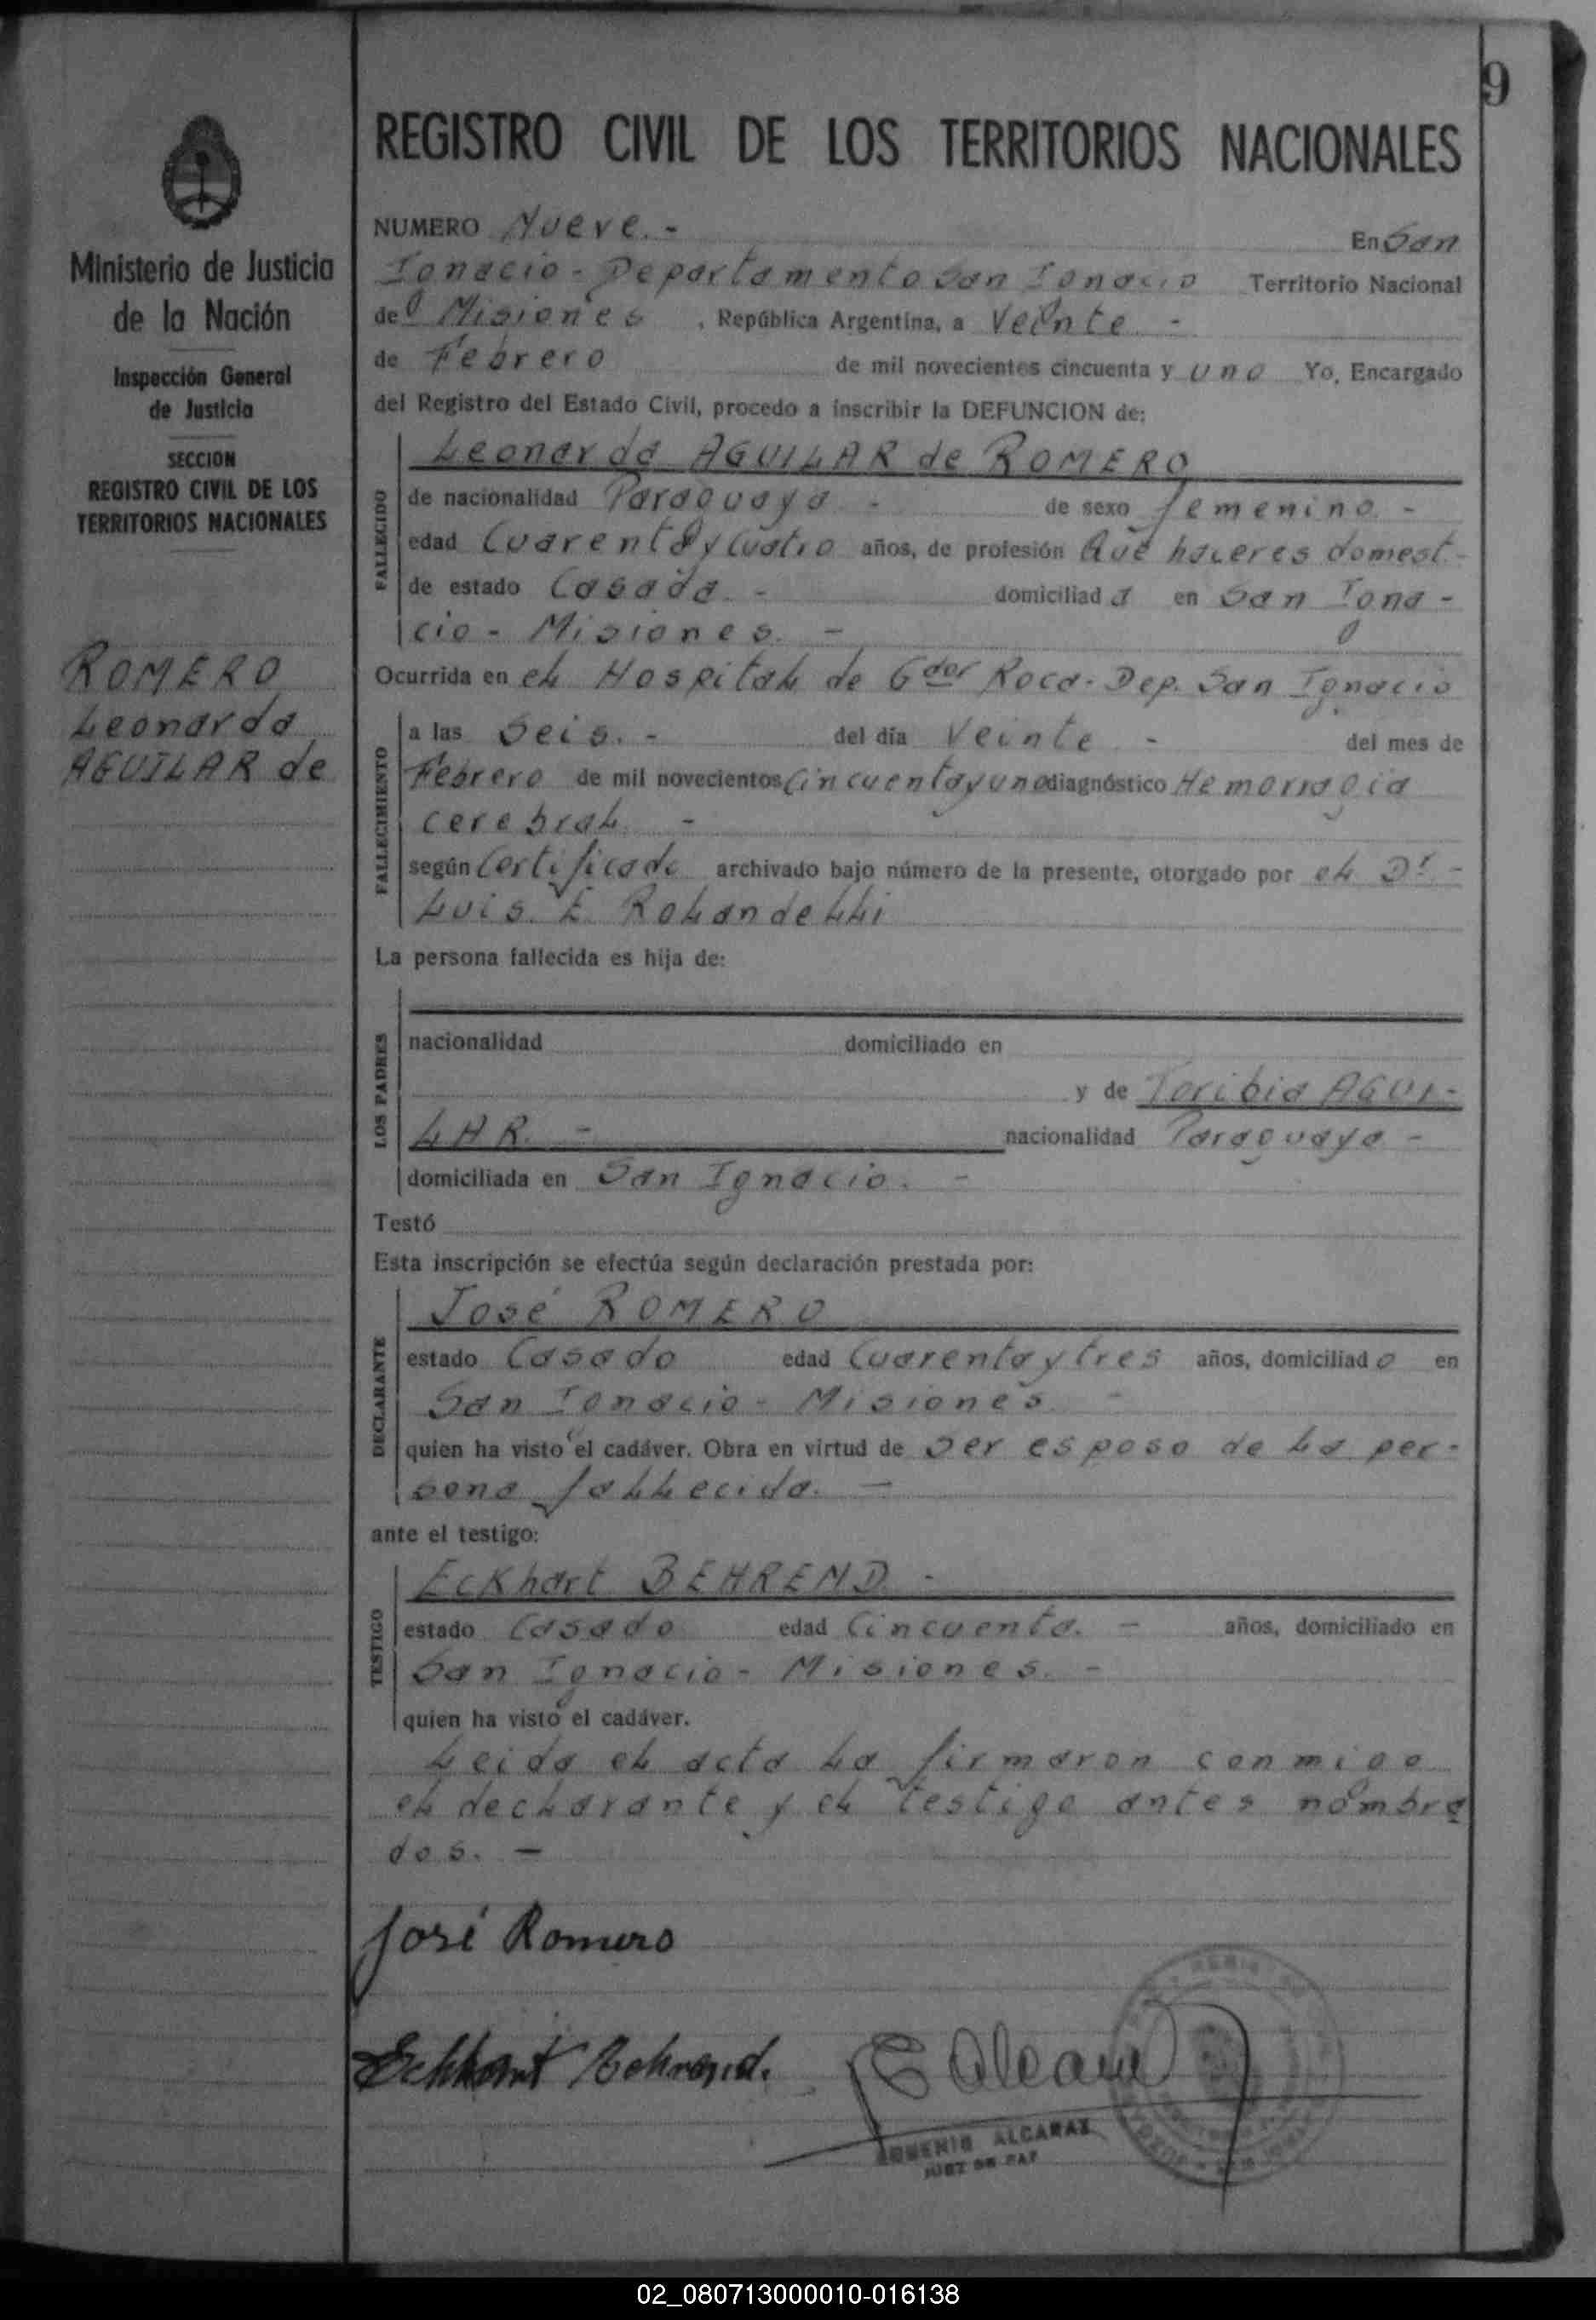 9
REGISTRO CIVIL DE LOS TERRITORIOS NACIONALES
Ministerio de Justicia
de la Nación
Inspección General
de Justicia
SECCION
REGISTRO CIVIL DE LOS
TERRITORIOS NACIONALES
ROMERO
Leonarda
AGUILAR de
NUMERO Nueve.- En San
Ignacio - Departamento San Ignacio Territorio Nacional
de Misiones , República Argentina, a Veinte -
de Febrero de mil novecientos cincuenta y uno Yo, Encargado
del Registro del Estado Civil, procedo a inscribir la DEFUNCION de:
FALLECIDO
Leonarda AGUILAR de ROMERO
de nacionalidad Paraguaya - de sexo femenino -
edad Cuarenta y cuatro años, de profesión Que haceres domest-
de estado Casada. - domiciliada en San Igna-
cio - Misiones. -
Ocurrida en el Hospital de Gdor Roca - Dep. San Ignacio
FALLECIMIENTO
a las Seis. - del día Veinte - del mes de
Febrero de mil novecientos Cincuenta y uno diagnóstico Hemorragia
cerebral. -
según Certificado archivado bajo número de la presente, otorgado por el Dr -
Luis E. Rolandelli
La persona fallecida es hija de:
LOS PADRES
nacionalidad domiciliado en
y de Toribia AGUI-
LAR. - nacionalidad Paraguaya -
domiciliada en San Ignacio. -
Testó
Esta inscripción se efectúa según declaración prestada por:
DECLARANTE
José ROMERO
estado Casado edad Cuarenta y tres años, domiciliado en
San Ignacio - Misiones. -
quien ha visto el cadáver. Obra en virtud de Ser esposo de la per-
sona fallecida. -
ante el testigo:
TESTIGO
Eckhart BEHREND -
estado Casado edad Cincuenta. - años, domiciliado en
San Ignacio - Misiones. -
quien ha visto el cadáver.
Leida el acta la firmaron conmigo
el declarante y el testigo antes nombra
dos. -
José Romero
Eckhart Behrend.
E Alcaraz
EUGENIO ALCARAZ
JUEZ DE PAZ
02_080713000010-016138